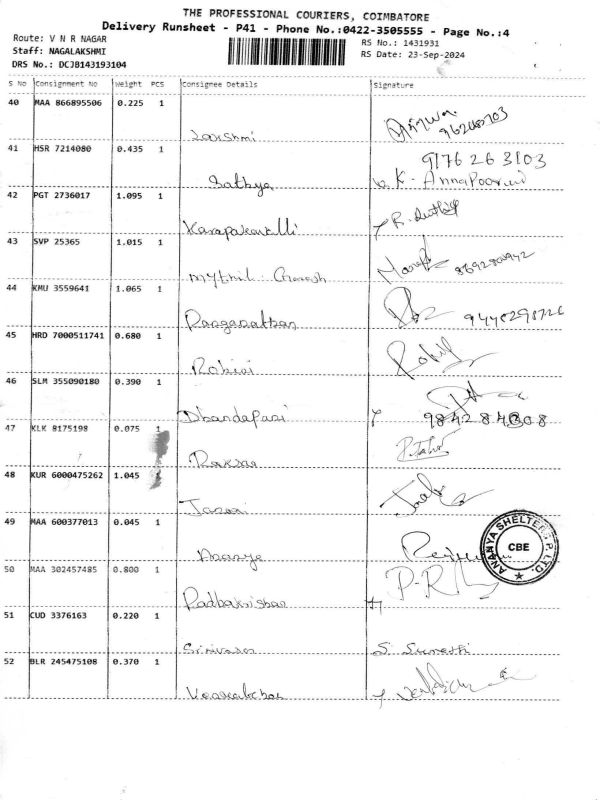 THE PROFESSIONAL COURIERS, COIMBATORE
Delivery Runsheet - P41 - Phone No.:0422-3505555 - Page No.:4
Route: V N R NAGAR
RS No.: 1431931
Staff: NAGALAKSHMI
RS Date: 23-Sep-2024
DRS No.: DCJB143193104
S No Consignment No Weight PCS Consignee Details Signature
40 MAA 866895506 0.225 1
Lakshmi
41 HSR 7214080 0.435 1
9176263103
Sathya K. Annapoorani
42 PGT 2736017 1.095 1
43 SVP 25365 1.015 1
Mythil
44 KMU 3559641 1.065 1
Ranganathan
45 HRD 7000511741 0.680 1
Rohini
46 SLM 355090180 0.390 1
Dhandapani
47 KLK 8175198 0.075 1
48 KUR 6000475262 1.045 1
49 MAA 600377013 0.045 1
ANANYA SHELTERS P. LTD.
CBE
50 MAA 302457485 0.800 1
P-R
Radhakrishnan
51 CUD 3376163 0.220 1
Srinivasan S. Sumathi
52 BLR 245475108 0.370 1